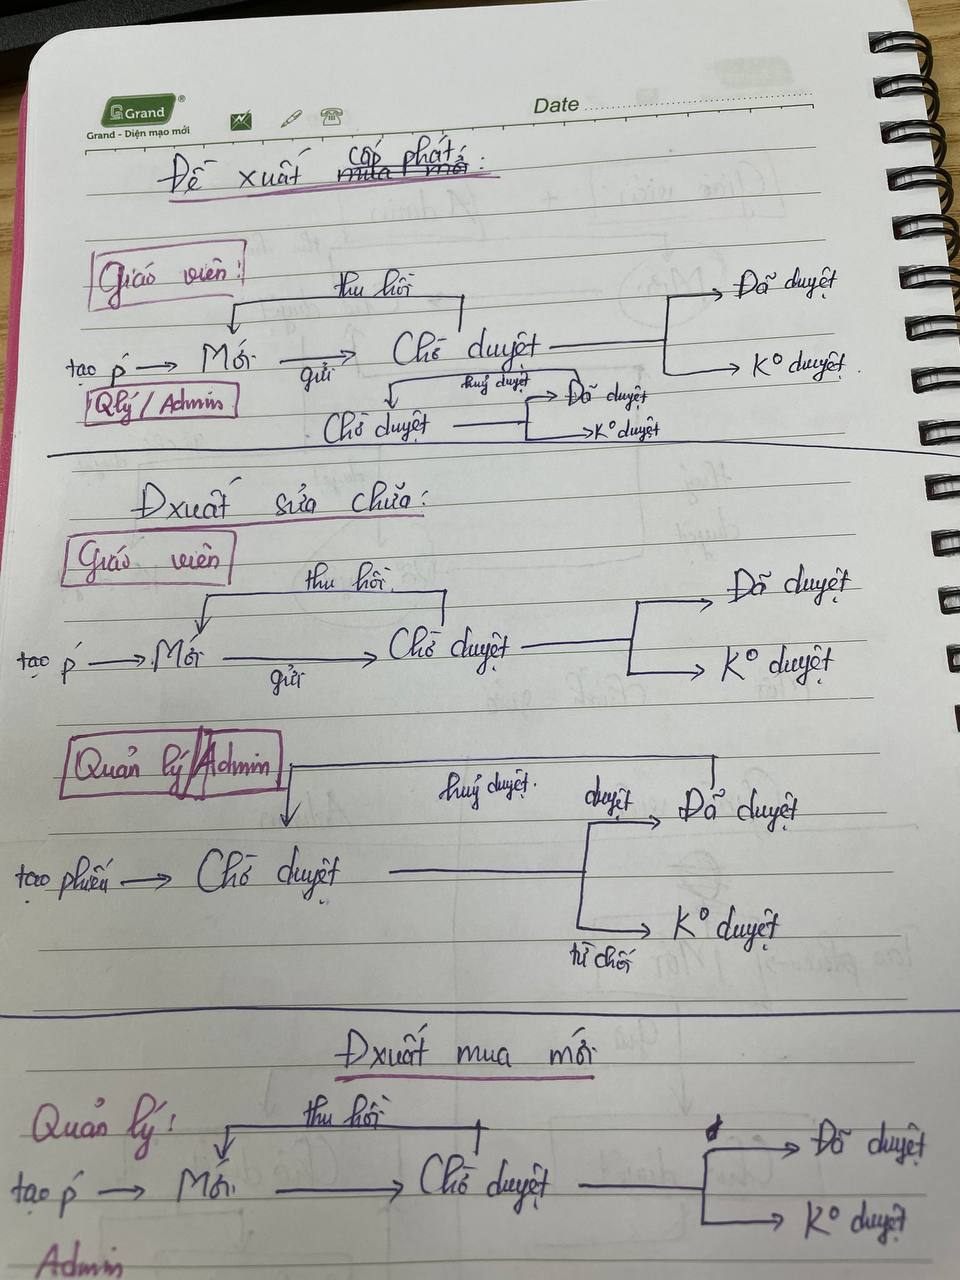 Grand
Grand - Diện mạo mới
Date
Đề xuất cấp phát:
mua mới
Giáo viên:
thu hồi
Đã duyệt
tạo p Mới Chờ duyệt
gửi
K° duyệt
Qlý/Admin
huỷ duyệt
Đã duyệt
Chờ duyệt
K° duyệt
Đxuất sửa chữa:
Giáo viên
thu hồi
Đã duyệt
tạo p Mới Chờ duyệt
gửi
K° duyệt
Quản lý/Admin
huỷ duyệt.
duyệt
Đã duyệt
tạo phiếu Chờ duyệt
K° duyệt
từ chối
Đxuất mua mới
Quản lý:
thu hồi
Đã duyệt
tạo p Mới Chờ duyệt
K° duyệt
Admin